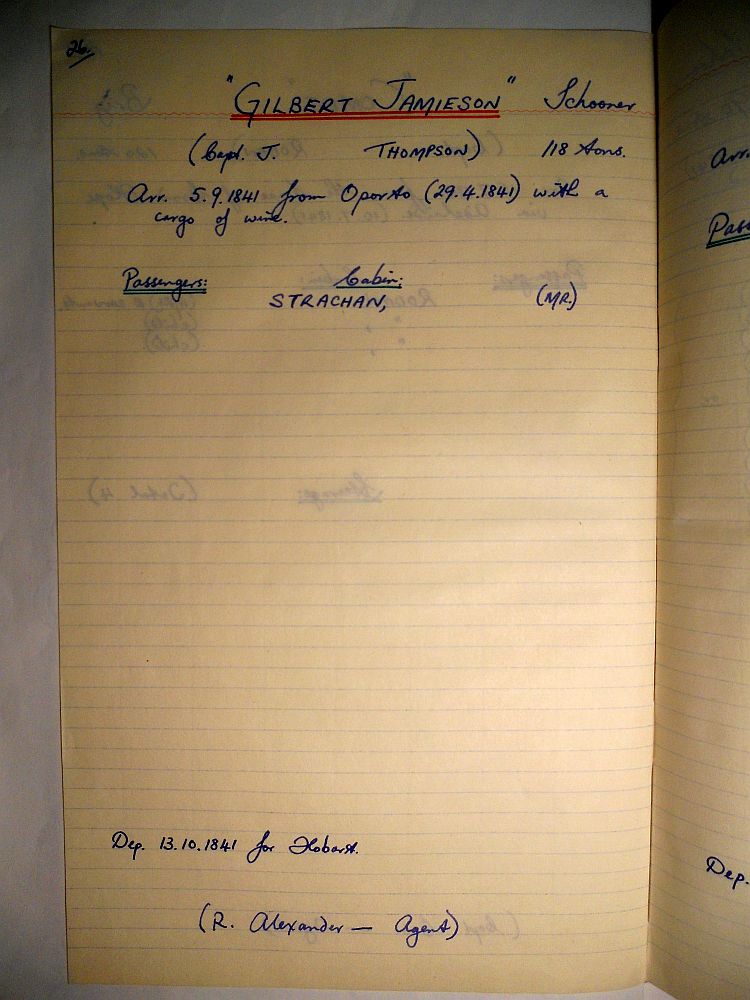 26.
"GILBERT JAMIESON" Schooner
(Capt. J. THOMPSON) 118 tons.
Arr. 5.9.1841 from Oporto (29.4.1841) with a
cargo of wine.
Passengers: Cabin:
STRACHAN, (MR.)
Dep. 13.10.1841 for Hobart.
(R. Alexander — Agent)
Arr.
Pass
Dep.